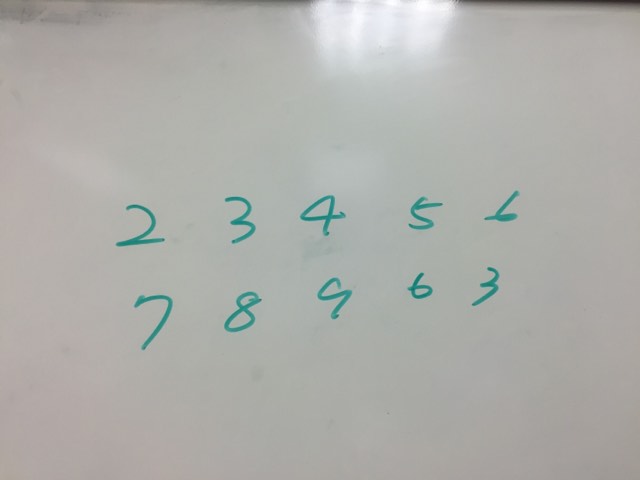 2 3 4 5 6
7 8 9 6 3